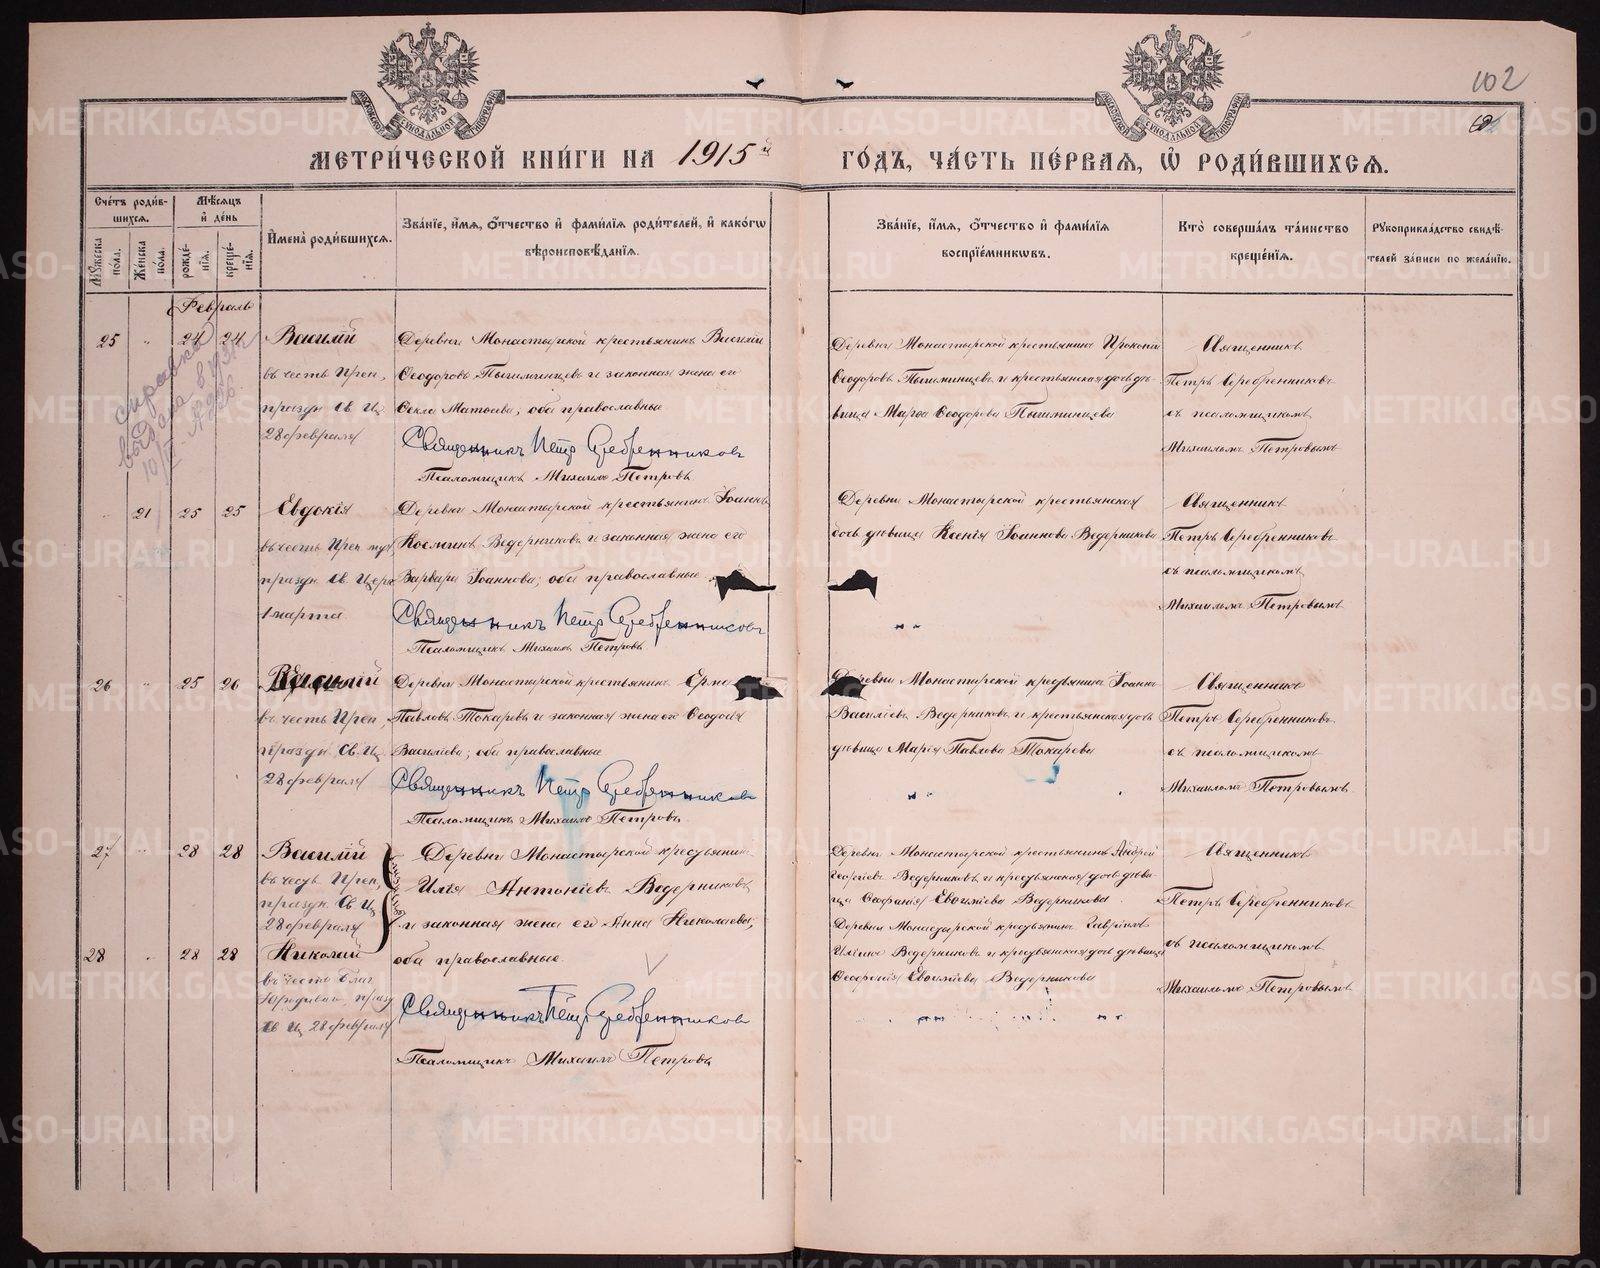 102
МОСКОВСКОЙ СѴНОДАЛЬНОЙ ТИПОГРАФІИ
МОСКОВСКОЙ СѴНОДАЛЬНОЙ ТИПОГРАФІИ
МЕТРИ́ЧЕСКОЙ КНИ́ГИ НА 1915й ГО́ДЪ, ЧА́СТЬ ПЕ́РВАЯ, Ѡ҆ РОДИ́ВШИХСѦ.
Сче́тъ роди́в-
шихся.
Мѣ́сяцъ
и҆ де́нь
Мꙋ́жеска по́ла.
Же́нска по́ла.
рожде́-
нїя.
креще́-
нїя.
И҆мена̀ роди́вшихся.
Зва́нїе, и҆́мя, ѻ҆́тчество и҆ фами́лїя роди́телей, и҆ како́гѡ
вѣроисповѣ́данїя.
Зва́нїе, и҆́мя, ѻ҆́тчество и҆ фами́лїя
воспрїе́мникѡвъ.
Кто̀ соверша́лъ та́инство
креще́нїя.
Рꙋкоприкла́дство свидѣ́-
телей за́писи по жела́нїю.
Февраль
25 " 24 24 Василій
въ честь Преп,
праздн. Св. Ц.
28 февраля
Деревни Монастырской крестьянинъ Василій
Ѳеодоровъ Пышминцевъ и законная жена его
Ѳекла Матѳеева; оба православные
Священникъ Петр Серебренников
Псаломщикъ Михаилъ Петровъ
Деревни Монастырской крестьянинъ Прокопій
Ѳеодоровъ Пышминцевъ и крестьянская дочь дѣ-
вица Марѳа Ѳеодорова Пышминцева
Священникъ
Петръ Серебренниковъ
съ псаломщикомъ
Михаиломъ Петровымъ
Справка
выдана в УЗАГС
" 21 25 25 Евдокія
въ честь Преп. муч
праздн. Св. Церк
1 марта
Деревни Монастырской крестьянинъ Іоаннъ
Косминъ Ведерниковъ и законная жена его
Варвара Іоаннова; оба православные
Священникъ Петр Серебренников
Псаломщикъ Михаилъ Петровъ
Деревни Монастырской крестьянская
дочь дѣвица Ксенія Іоаннова Ведерникова
Священникъ
Петръ Серебренниковъ
съ псаломщикомъ
Михаиломъ Петровымъ
26 " 25 26 Василій
въ честь Преп,
праздн. Св. Ц.
28 февраля
Деревни Монастырской крестьянинъ Ерм
Павловъ Токаревъ и законная жена его Ѳеодосія
Василіева; оба православные
Священникъ Петр Серебренников
Псаломщикъ Михаилъ Петровъ
Деревни Монастырской крестьянинъ Іоаннъ
Василіевъ Ведерниковъ и крестьянская дочь
дѣвица Марія Павлова Токарева
Священникъ
Петръ Серебренниковъ
съ псаломщикомъ
Михаиломъ Петровымъ
27 " 28 28 Василій
въ честь Преп,
праздн. Св. Ц.
28 февраля
близнецы
Деревни Монастырской крестьянинъ
Илія Антоніевъ Ведерниковъ
и законная жена его Анна Николаева;
оба православные.
Деревни Монастырской крестьянинъ Андрей
Георгіевъ Ведерниковъ и крестьянская дочь дѣви-
ца Ѳеофанія Евѳиміева Ведерникова.
Священникъ
Петръ Серебренниковъ
съ псаломщикомъ
Михаиломъ Петровымъ
28 " 28 28 Николай
въ честь Блаж
Юродиваго, празд
Св Ц 28 февраля
Священникъ Петр Серебренников
Псаломщикъ Михаилъ Петровъ
Деревни Монастырской крестьянинъ Гавріилъ
Иліинъ Ведерниковъ и крестьянская дочь дѣвица
Ѳеофанія Евѳиміева Ведерникова
METRIKI.GASO-URAL.RU